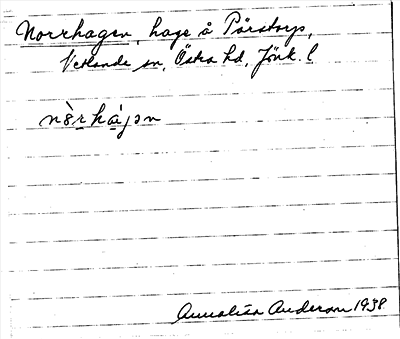 Norrhagen, hage å Pärstorp,
Vetlanda sn, Östra hd, Jönk. l
nòrhájən
Annalisa Anderson 1938